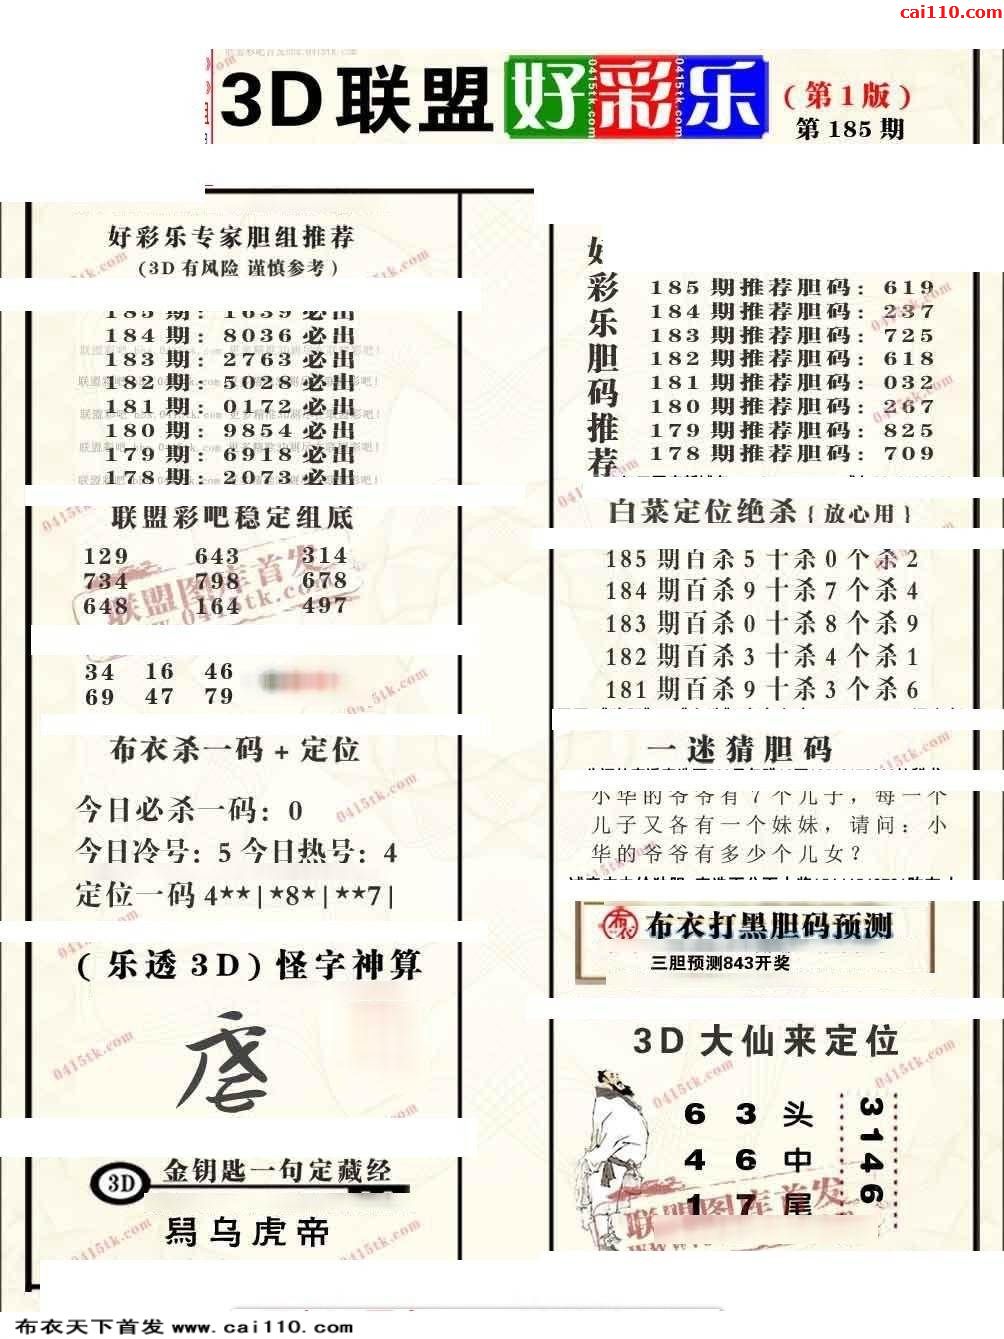 cai110.com
3D联盟好彩乐
(第1版)
第185期
好彩乐专家胆组推荐
(3D有风险 谨慎参考)
185期：1639必出
184期：8036必出
183期：2763必出
182期：5028必出
181期：0172必出
180期：9854必出
179期：6918必出
178期：2073必出
联盟彩吧稳定组底
129 643 314
734 798 678
648 164 497
34 16 46
69 47 79
布衣杀一码+定位
今日必杀一码：0
今日冷号：5 今日热号：4
定位一码4**|*8*|**7|
(乐透3D)怪字神算
3D
金钥匙一句定藏经
乌虎帝
好彩乐胆码推荐
185期推荐胆码：619
184期推荐胆码：237
183期推荐胆码：725
182期推荐胆码：618
181期推荐胆码：032
180期推荐胆码：267
179期推荐胆码：825
178期推荐胆码：709
白菜定位绝杀{放心用}
185期百杀5十杀0个杀2
184期百杀9十杀7个杀4
183期百杀0十杀8个杀9
182期百杀3十杀4个杀1
181期百杀9十杀3个杀6
一迷猜胆码
小华的爷爷有7个儿子，每一个
儿子又各有一个妹妹，请问：小
华的爷爷有多少个儿女？
布衣打黑胆码预测
三胆预测843开奖
3D大仙来定位
6 3 头
4 6 中
1 7 尾
3146
联盟图库首发
0415tk.com
布衣天下首发 www.cai110.com